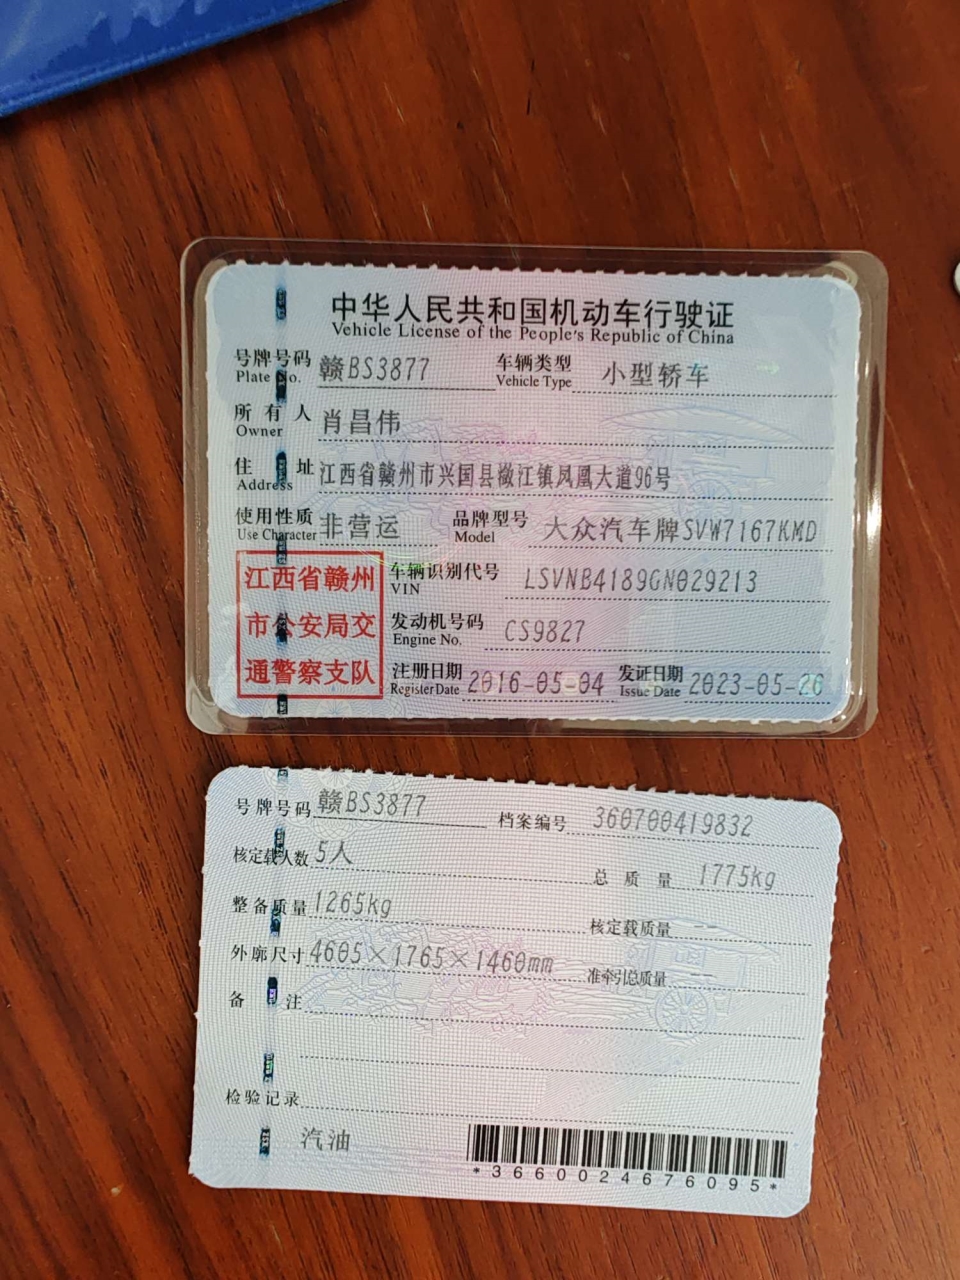 中华人民共和国机动车行驶证
Vehicle License of the People's Republic of China
号牌号码 赣BS3877 车辆类型 小型轿车
Plate No. Vehicle Type
所有人 肖昌伟
Owner
住址 江西省赣州市兴国县潋江镇凤凰大道96号
Address
使用性质 非营运 品牌型号 大众汽车牌SVW7167KMD
Use Character Model
江西省赣州市公安局交通警察支队
车辆识别代号 LSVNB4189GN029213
VIN
发动机号码 CS9827
Engine No.
注册日期 2016-05-04 发证日期 2023-05-26
Register Date Issue Date
号牌号码 赣BS3877 档案编号 360700419832
核定载人数 5人 总质量 1775kg
整备质量 1265kg 核定载质量 --
外廓尺寸 4605×1765×1460mm 准牵引总质量 --
备注
检验记录
汽油
*3660024676095*